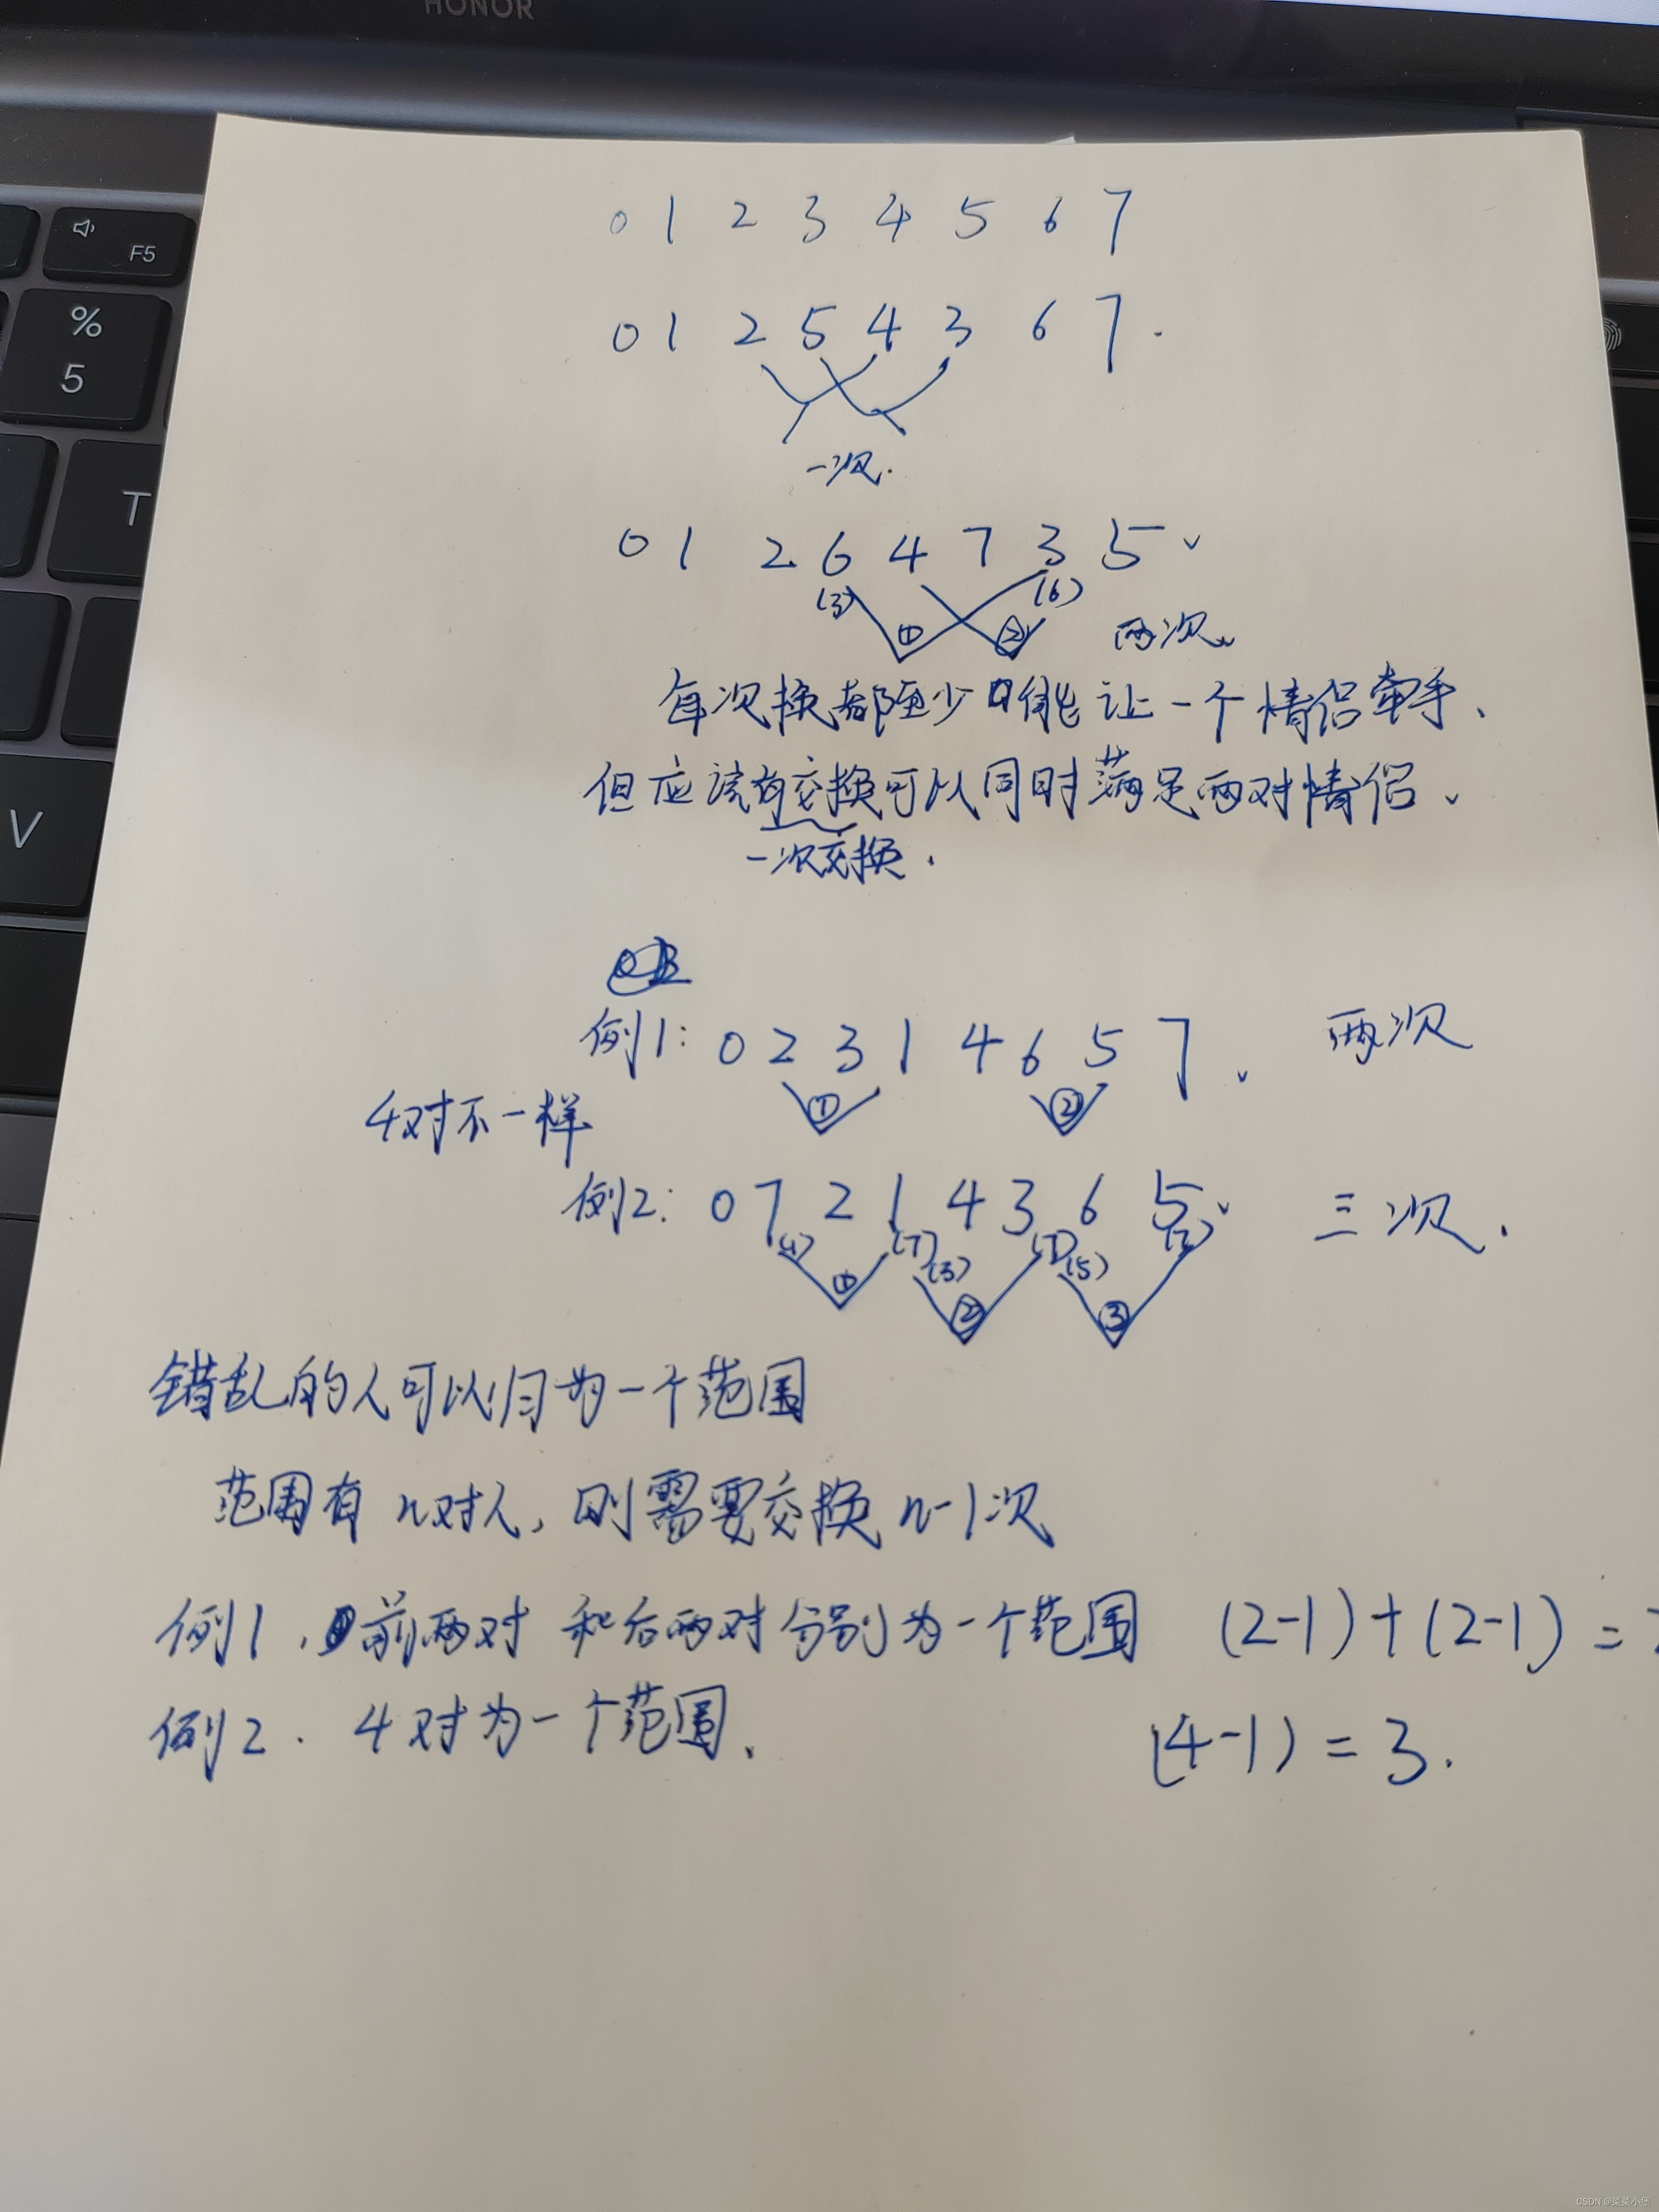 HONOR
F5
%
5
T
V
0 1 2 3 4 5 6 7
0 1 2 5 4 3 6 7.
一次.
0 1 2 6 4 7 3 5、
(3) (6)
① ② 两次.
每次换都至少能让一个情侣牵手、
但应该有交换可以同时满足两对情侣、
一次交换.
例1: 0 2 3 1 4 6 5 7. 两次
① ②
4对不一样
例2: 0 7 2 1 4 3 6 5、 三次.
(1) (7) (3) (7) (5) (7)
① ② ③
错乱的人可以归为一个范围
范围有n对人,则需要交换n-1次
例1、前两对和后两对分别为一个范围 (2-1)+(2-1)=
例2. 4对为一个范围、 (4-1)=3.
CSDN @菜菜小堡